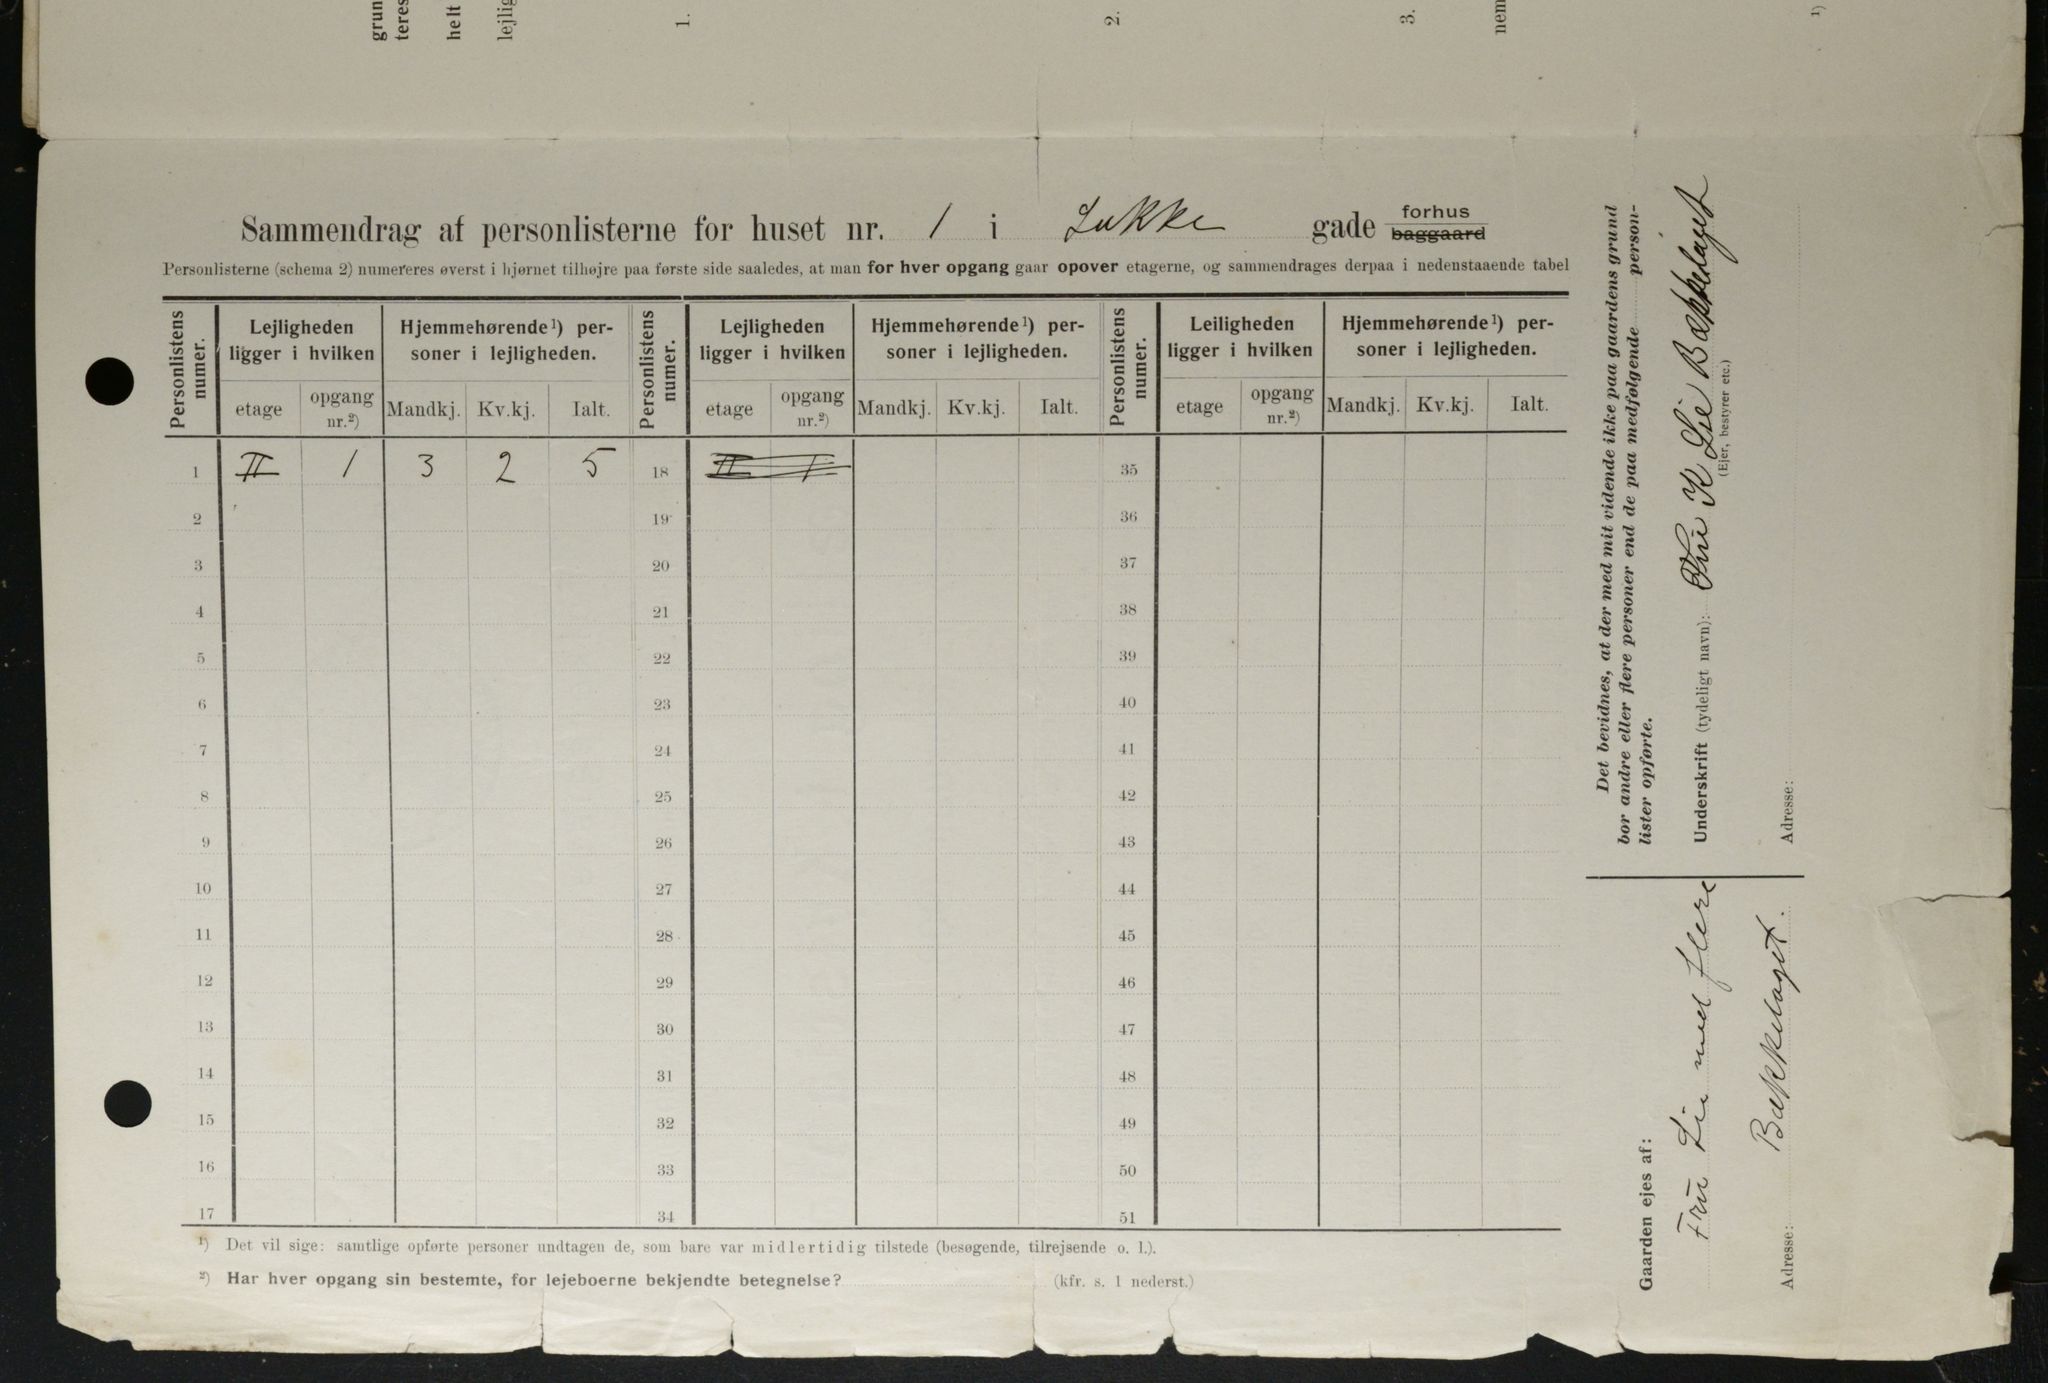 grun
teres
helt
lejlig
1.
2.
3.
nem
1)
Sammendrag af personlisterne for huset nr. 1 i Lakke gade forhus
baggaard
Personlisterne (schema 2) numereres øverst i hjørnet tilhøjre paa første side saaledes, at man for hver opgang gaar opover etagerne, og sammendrages derpaa i nedenstaaende tabel
Personlistens numer. Lejligheden ligger i hvilken Hjemmehørende 1) personer i lejligheden. Personlistens numer. Lejligheden ligger i hvilken Hjemmehørende 1) personer i lejligheden. Personlistens numer. Leiligheden ligger i hvilken Hjemmehørende 1) personer i lejligheden.
etage opgang nr.2) Mandkj. Kv.kj. Ialt. etage opgang nr.2) Mandkj. Kv.kj. Ialt. etage opgang nr.2) Mandkj. Kv.kj. Ialt.
1 II 1 3 2 5 18 II 1 35
2 19 36
3 20 37
4 21 38
5 22 39
6 23 40
7 24 41
8 25 42
9 26 43
10 27 44
11 28 45
12 29 46
13 30 47
14 31 48
15 32 49
16 33 50
17 34 51
1) Det vil sige: samtlige opførte personer undtagen de, som bare var midlertidig tilstede (besøgende, tilrejsende o. l.).
2) Har hver opgang sin bestemte, for lejeboerne bekjendte betegnelse? (kfr. s. 1 nederst.)
Det bevidnes, at der med mit vidende ikke paa gaardens grund
bor andre eller flere personer end de paa medfølgende person-
lister opførte.
Underskrift (tydeligt navn): Fru K Lie Bækkelaget
(Ejer, bestyrer etc.)
Adresse:
Gaarden ejes af:
Fru Lie med flere
Adresse: Bækkelaget.